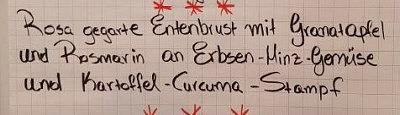 Rosa gegarte Entenbrust mit Granatapfel
und Rosmarin an Erbsen-Minz-Gemüse
und Kartoffel-Curcuma-Stampf